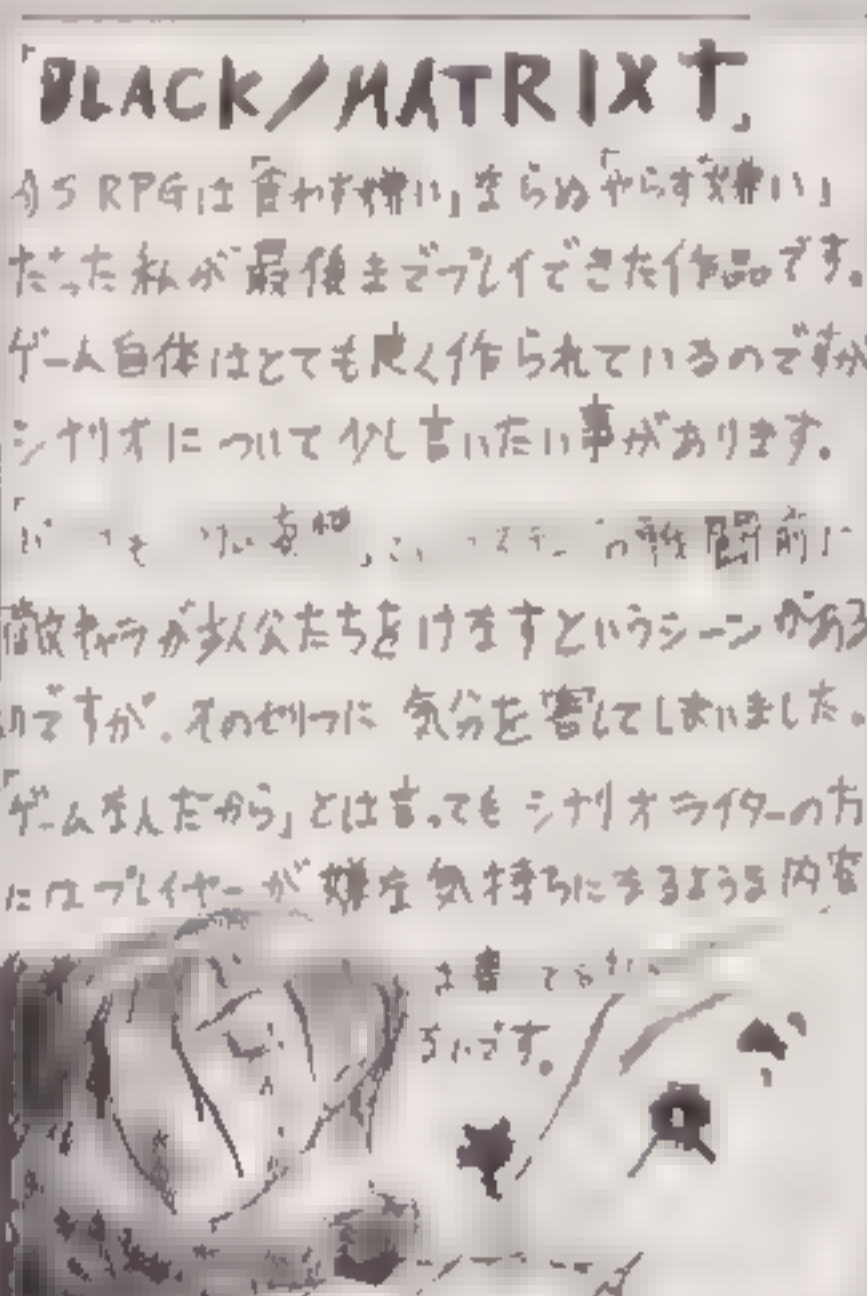 「BLACK/MATRIX†」
RPGは「食わず嫌い」ならぬ「やらず嫌い」
だった私が最後までプレイできた作品です。
ゲーム自体はとても良く作られているのですが
シナリオについて少し言いたい事があります。
の戦闘前に
敵キャラが主人公たちをけなすというシーンがある
のですが、そのセリフに気分を害してしまいました。
「ゲームなんだから」とは言ってもシナリオライターの方
にはプレイヤーが嫌な気持ちになるような内容
は書
いです。